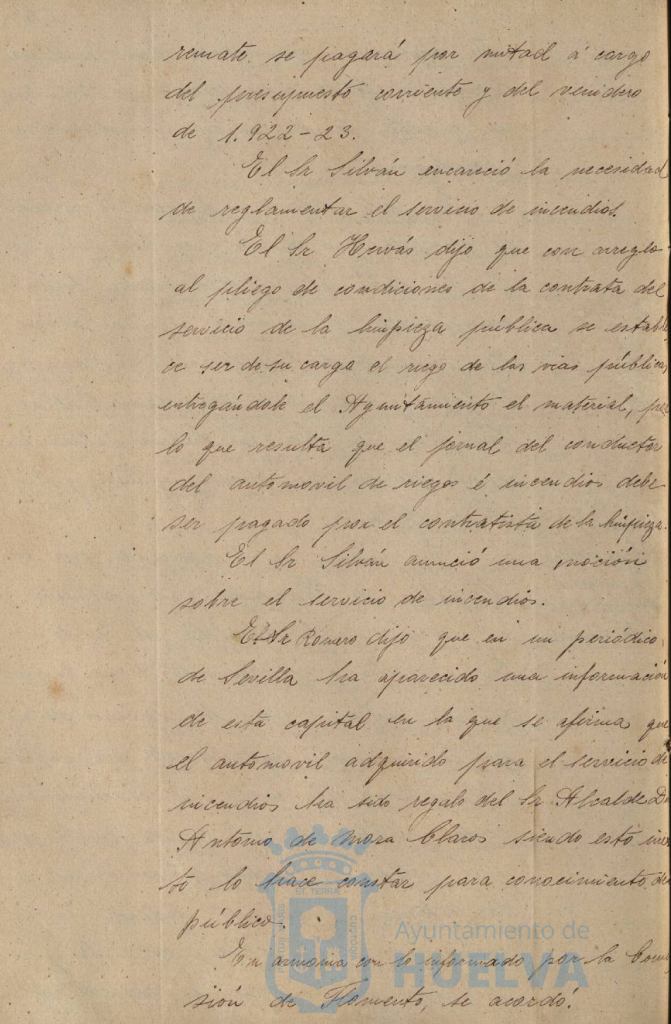 remate se pagará por mitad á cargo
del presupuesto corriente y del venidero
de 1.922-23.
El Sr Silván encareció la necesidad
de reglamentar el servicio de incendios.
El Sr Hervás dijo que con arreglo
al pliego de condiciones de la contrata del
servicio de la limpieza pública se estable
ce ser de su cargo el riego de las vias públicas,
entregándole el Ayuntamiento el material, por
lo que resulta que el jornal del conductor
del automovil de riegos é incendios debe
ser pagado por el contratista de la limpieza.
El Sr Silván anunció una moción
sobre el servicio de incendios.
El Sr Romero dijo que en un periódico
de Sevilla ha aparecido una información
de esta capital en la que se afirma que
el automovil adquirido para el servicio de
incendios ha sido regalo del Sr Alcalde Dn
Antonio de Mora Claros siendo esto inexac
to lo hace constar para conocimiento del
público.
En armonia con lo informado por la Comi
sión de Fomento, se acordó:
Ayuntamiento de
HUELVA